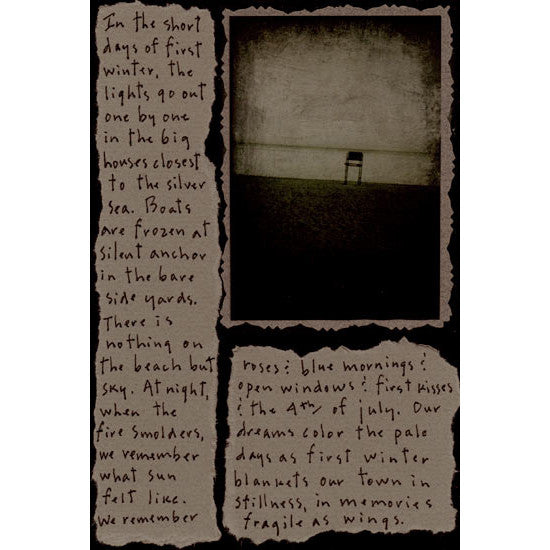 In the short
days of first
winter, the
lights go out
one by one
in the big
houses closest
to the silver
sea. Boats
are frozen at
silent anchor
in the bare
side yards.
There is
nothing on
the beach but
sky. At night,
when the
fire smolders,
we remember
what sun
felt like.
We remember
roses & blue mornings &
open windows & first kisses
& the 4th of july. Our
dreams color the pale
days as first winter
blankets our town in
stillness, in memories
fragile as wings.